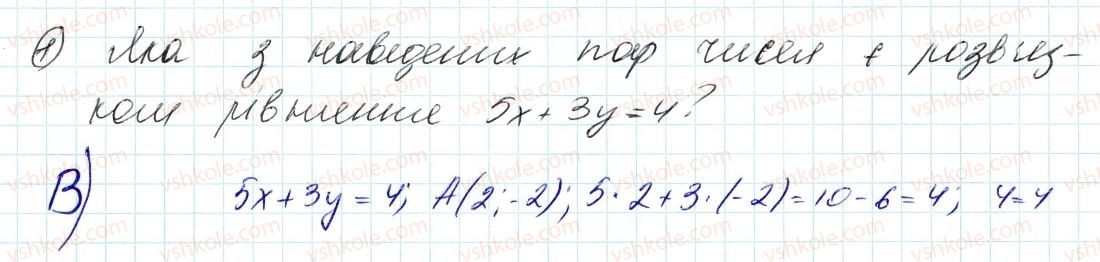 1) Яка з наведених пар чисел є розв'яз-
ком рівняння 5x + 3y = 4?
В) 5x + 3y = 4; A(2; -2); 5 · 2 + 3 · (-2) = 10 - 6 = 4; 4 = 4